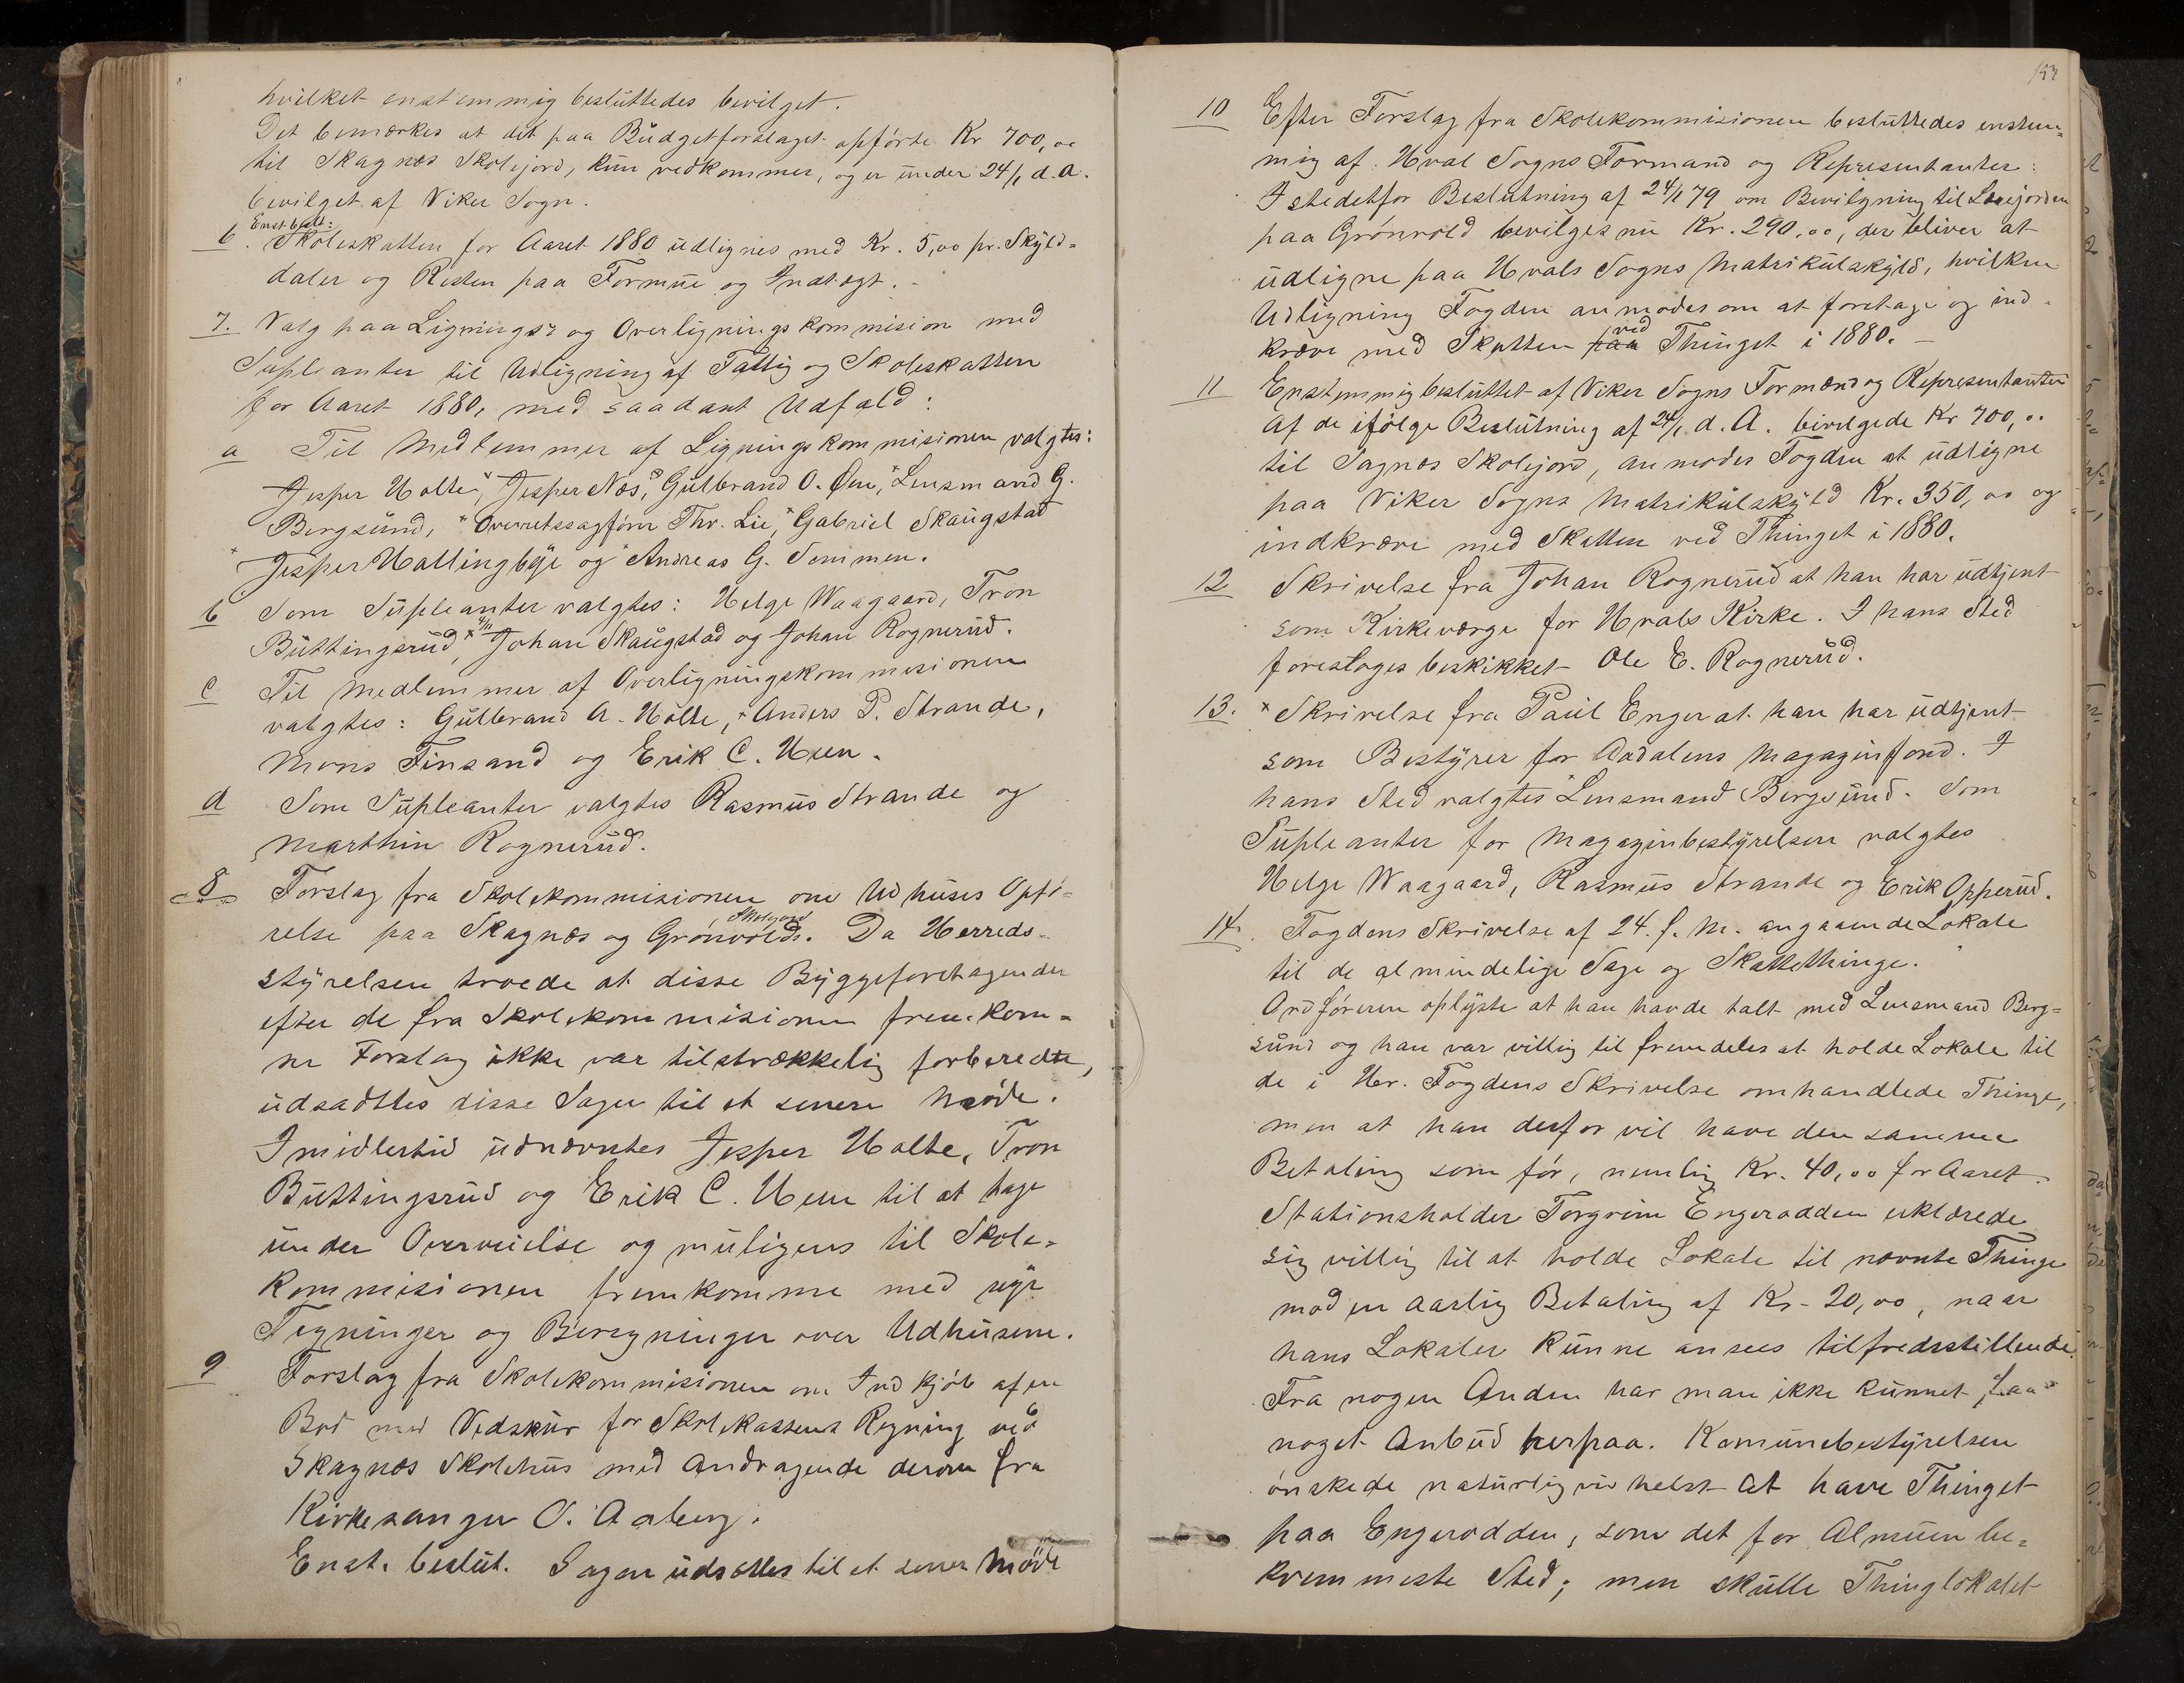 hvilket enstemmig besluttedes bevilget.
Det bemærkes at det paa Büdgetforslaget opførte Kr 700,00
til Skagnæs Skolejord, kün vedkommer, og er ünder 24/1 d. A.
bevilget af Viker Sogn.
Enst besl:
6. Skoleskatten for Aaret 1880 üdlignes med Kr. 5,00 pr. Skyld-
daler og Resten paa Formüe og Indtægt. -
7. Valg paa Lignings- og Overligningskommision med
Süpleanter til Udligning af Fattig og Skoleskatten
for Aaret 1880, med saadant Udfald:
a Til Medlemmer af Ligningskommisionen valgtes:
Jesper Holte, Jesper Næs, Gülbrand O. Øen, Lensmand G.
Bergsünd, Overretssagfører Thr. Lie, Gabriel Skaügstad
Jesper Hallingbye og Andreas G. Semmen.
b Som Süpleanter valgtes: Helge Waagaard, Tron
Büttingsrüd, Johan Skaügstad og Johan Rognerüd.
c Til Medlemmer af Overligningskommisionen
valgtes: Gülbrand A. Holte, Anders P. Strande,
Mons Finsand og Erik C. Heen.
d Som Süpleanter valgtes Rasmüs Strande og
Marthin Rognerüd.
8 Forslag fra Skolekommisionen om Udhüses Opfø-
Skolejord
relse paa Skagnæs og Grønvold. Da Herreds-
styrelsen troede at disse Byggeforetagender
efter de fra Skolekommisionen fremkom-
ne Forslag ikke var tilstrækkelig forberedte,
üdsattes disse Sager til et senere Møde.
Imidlertid üdnævntes Jesper Holte, Tron
Büttingsrüd og Erik C. Heen til at tage
ünder Overveielse og müligens til Skole-
kommisionen fremkomme med nye
Tegninger og Beregninger over Udhüsene.
9 Forslag fra Skolekommisionen om Indkjøb af en
Bod med Vedskür for Skolekassens Regning ved
Skagnæs Skolehüs med Andragende derom fra
Kirkesanger O. Aaberg.
Enst. beslüt. Sagen üdsættes til et senere Møde
153
10 Efter Forslag fra Skolekommisionen beslüttedes enstem-
mig af Hval Sogns Formænd og Representanter:
Istedetfor Beslütning af 24/1 79 om Bevilgning til Lærejorden
paa Grønvold bevilges nü Kr. 290,00, der bliver at
üdligne paa Hvals Sogns Matrikülskyld, hvilken
Udligning Fogden anmodes om at foretage og ind-
kræve med Skatten paa ved Thinget i 1880. -
11 Enstemmig beslüttet af Viker Sogns Formænd og Representanter
Af de ifølge Beslütning af 24/1 d. A. bevilgede Kr 700,00
til Sagnæs Skolejord, anmodes Fogden at üdligne
paa Viker Sogns Matrikülskyld Kr. 350,00 og
indkræve med Skatten ved Thinget i 1880.
12 Skrivelse fra Johan Rognerüd at han har üdtjent
som Kirkeværge for Hvals Kirke. I hans Sted
foreslages beskikket Ole E. Rognerüd.
13. Skrivelse fra Paül Enger at han har üdtjent
som Bestyrer for Aadalens Magazinfond. I
hans Sted valgtes Lensmand Bergsünd. Som
Süpleanter for Magazinbestyrelsen valgtes
Helge Waagaard, Rasmüs Strande og Erik Opperüd.
14. Fogdens Skrivelse af 24. f. M. angaaende Lokale
til de almindelige Sage og Skattethinge.
Ordføreren oplyste at han havde talt med Lensmand Berg-
sünd og han var villig til fremdeles at holde Lokale til
de i Hr. Fogdens Skrivelse omhandlede Thinge,
men at han derfor vil have den samme
Betaling som før, nemlig Kr. 40,00 for Aaret.
Stationsholder Torgrim Engerodden erklærede
sig villig til at holde Lokale til nævnte Thinge
mod en aarlig Betaling af Kr. 20,00, naar
hans Lokaler künne ansees tilfredsstillende.
Fra nogen Anden har man ikke künnet faa
noget Anbüd herpaa. Komünebestyrelsen
ønskede natürligvis helst at have Thinget
paa Engerodden, som det for Almüen be-
kvemmeste Sted; men skülle Thinglokalet